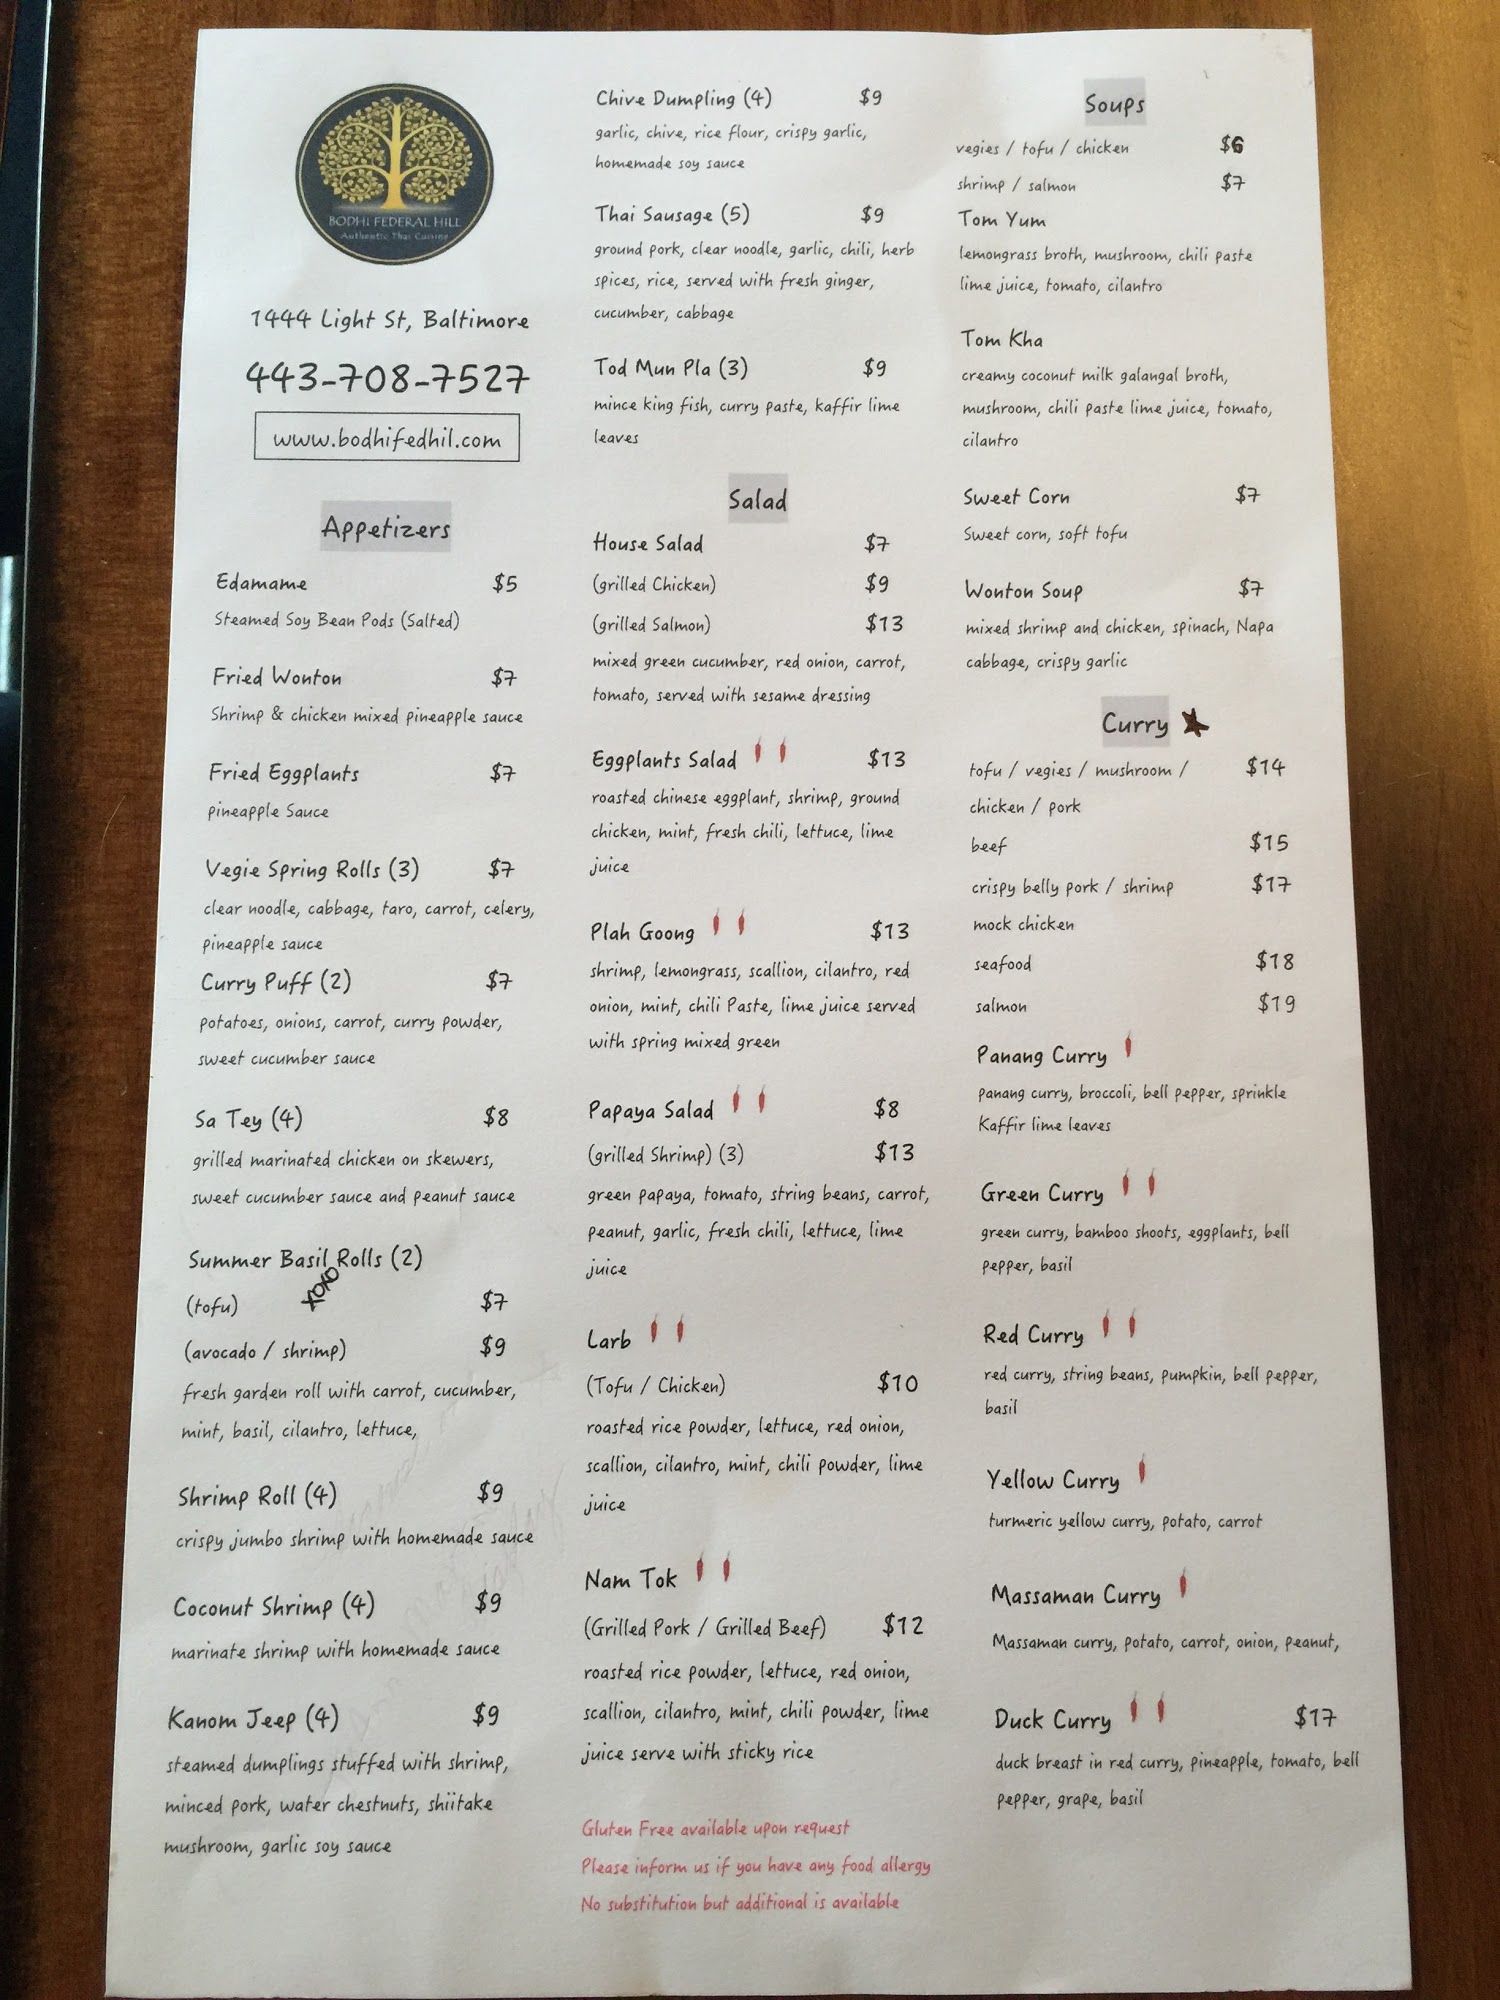 BODHI FEDERAL HILL
Authentic Thai Cuisine
1444 Light St, Baltimore
443-708-7527
www.bodhifedhil.com
Appetizers
Edamame $5
Steamed Soy Bean Pods (Salted)
Fried Wonton $7
Shrimp & chicken mixed pineapple sauce
Fried Eggplants $7
pineapple Sauce
Vegie Spring Rolls (3) $7
clear noodle, cabbage, taro, carrot, celery,
pineapple sauce
Curry Puff (2) $7
potatoes, onions, carrot, curry powder,
sweet cucumber sauce
Sa Tey (4) $8
grilled marinated chicken on skewers,
sweet cucumber sauce and peanut sauce
Summer Basil Rolls (2)
XOXO
(tofu) $7
(avocado / shrimp) $9
fresh garden roll with carrot, cucumber,
mint, basil, cilantro, lettuce,
Shrimp Roll (4) $9
crispy jumbo shrimp with homemade sauce
Coconut Shrimp (4) $9
marinate shrimp with homemade sauce
Kanom Jeep (4) $9
steamed dumplings stuffed with shrimp,
minced pork, water chestnuts, shiitake
mushroom, garlic soy sauce
Chive Dumpling (4) $9
garlic, chive, rice flour, crispy garlic,
homemade soy sauce
Thai Sausage (5) $9
ground pork, clear noodle, garlic, chili, herb
spices, rice, served with fresh ginger,
cucumber, cabbage
Tod Mun Pla (3) $9
mince king fish, curry paste, kaffir lime
leaves
Salad
House Salad $7
(grilled Chicken) $9
(grilled Salmon) $13
mixed green cucumber, red onion, carrot,
tomato, served with sesame dressing
Eggplants Salad $13
roasted chinese eggplant, shrimp, ground
chicken, mint, fresh chili, lettuce, lime
juice
Plah Goong $13
shrimp, lemongrass, scallion, cilantro, red
onion, mint, chili Paste, lime juice served
with spring mixed green
Papaya Salad $8
(grilled Shrimp) (3) $13
green papaya, tomato, string beans, carrot,
peanut, garlic, fresh chili, lettuce, lime
juice
Larb
(Tofu / Chicken) $10
roasted rice powder, lettuce, red onion,
scallion, cilantro, mint, chili powder, lime
juice
Nam Tok
(Grilled Pork / Grilled Beef) $12
roasted rice powder, lettuce, red onion,
scallion, cilantro, mint, chili powder, lime
juice serve with sticky rice
Gluten Free available upon request
Please inform us if you have any food allergy
No substitution but additional is available
Soups
vegies / tofu / chicken $6
shrimp / salmon $7
Tom Yum
lemongrass broth, mushroom, chili paste
lime juice, tomato, cilantro
Tom Kha
creamy coconut milk galangal broth,
mushroom, chili paste lime juice, tomato,
cilantro
Sweet Corn $7
Sweet corn, soft tofu
Wonton Soup $7
mixed shrimp and chicken, spinach, Napa
cabbage, crispy garlic
Curry
tofu / vegies / mushroom / $14
chicken / pork
beef $15
crispy belly pork / shrimp $17
mock chicken
seafood $18
salmon $19
Panang Curry
panang curry, broccoli, bell pepper, sprinkle
Kaffir lime leaves
Green Curry
green curry, bamboo shoots, eggplants, bell
pepper, basil
Red Curry
red curry, string beans, pumpkin, bell pepper,
basil
Yellow Curry
turmeric yellow curry, potato, carrot
Massaman Curry
Massaman curry, potato, carrot, onion, peanut,
Duck Curry $17
duck breast in red curry, pineapple, tomato, bell
pepper, grape, basil